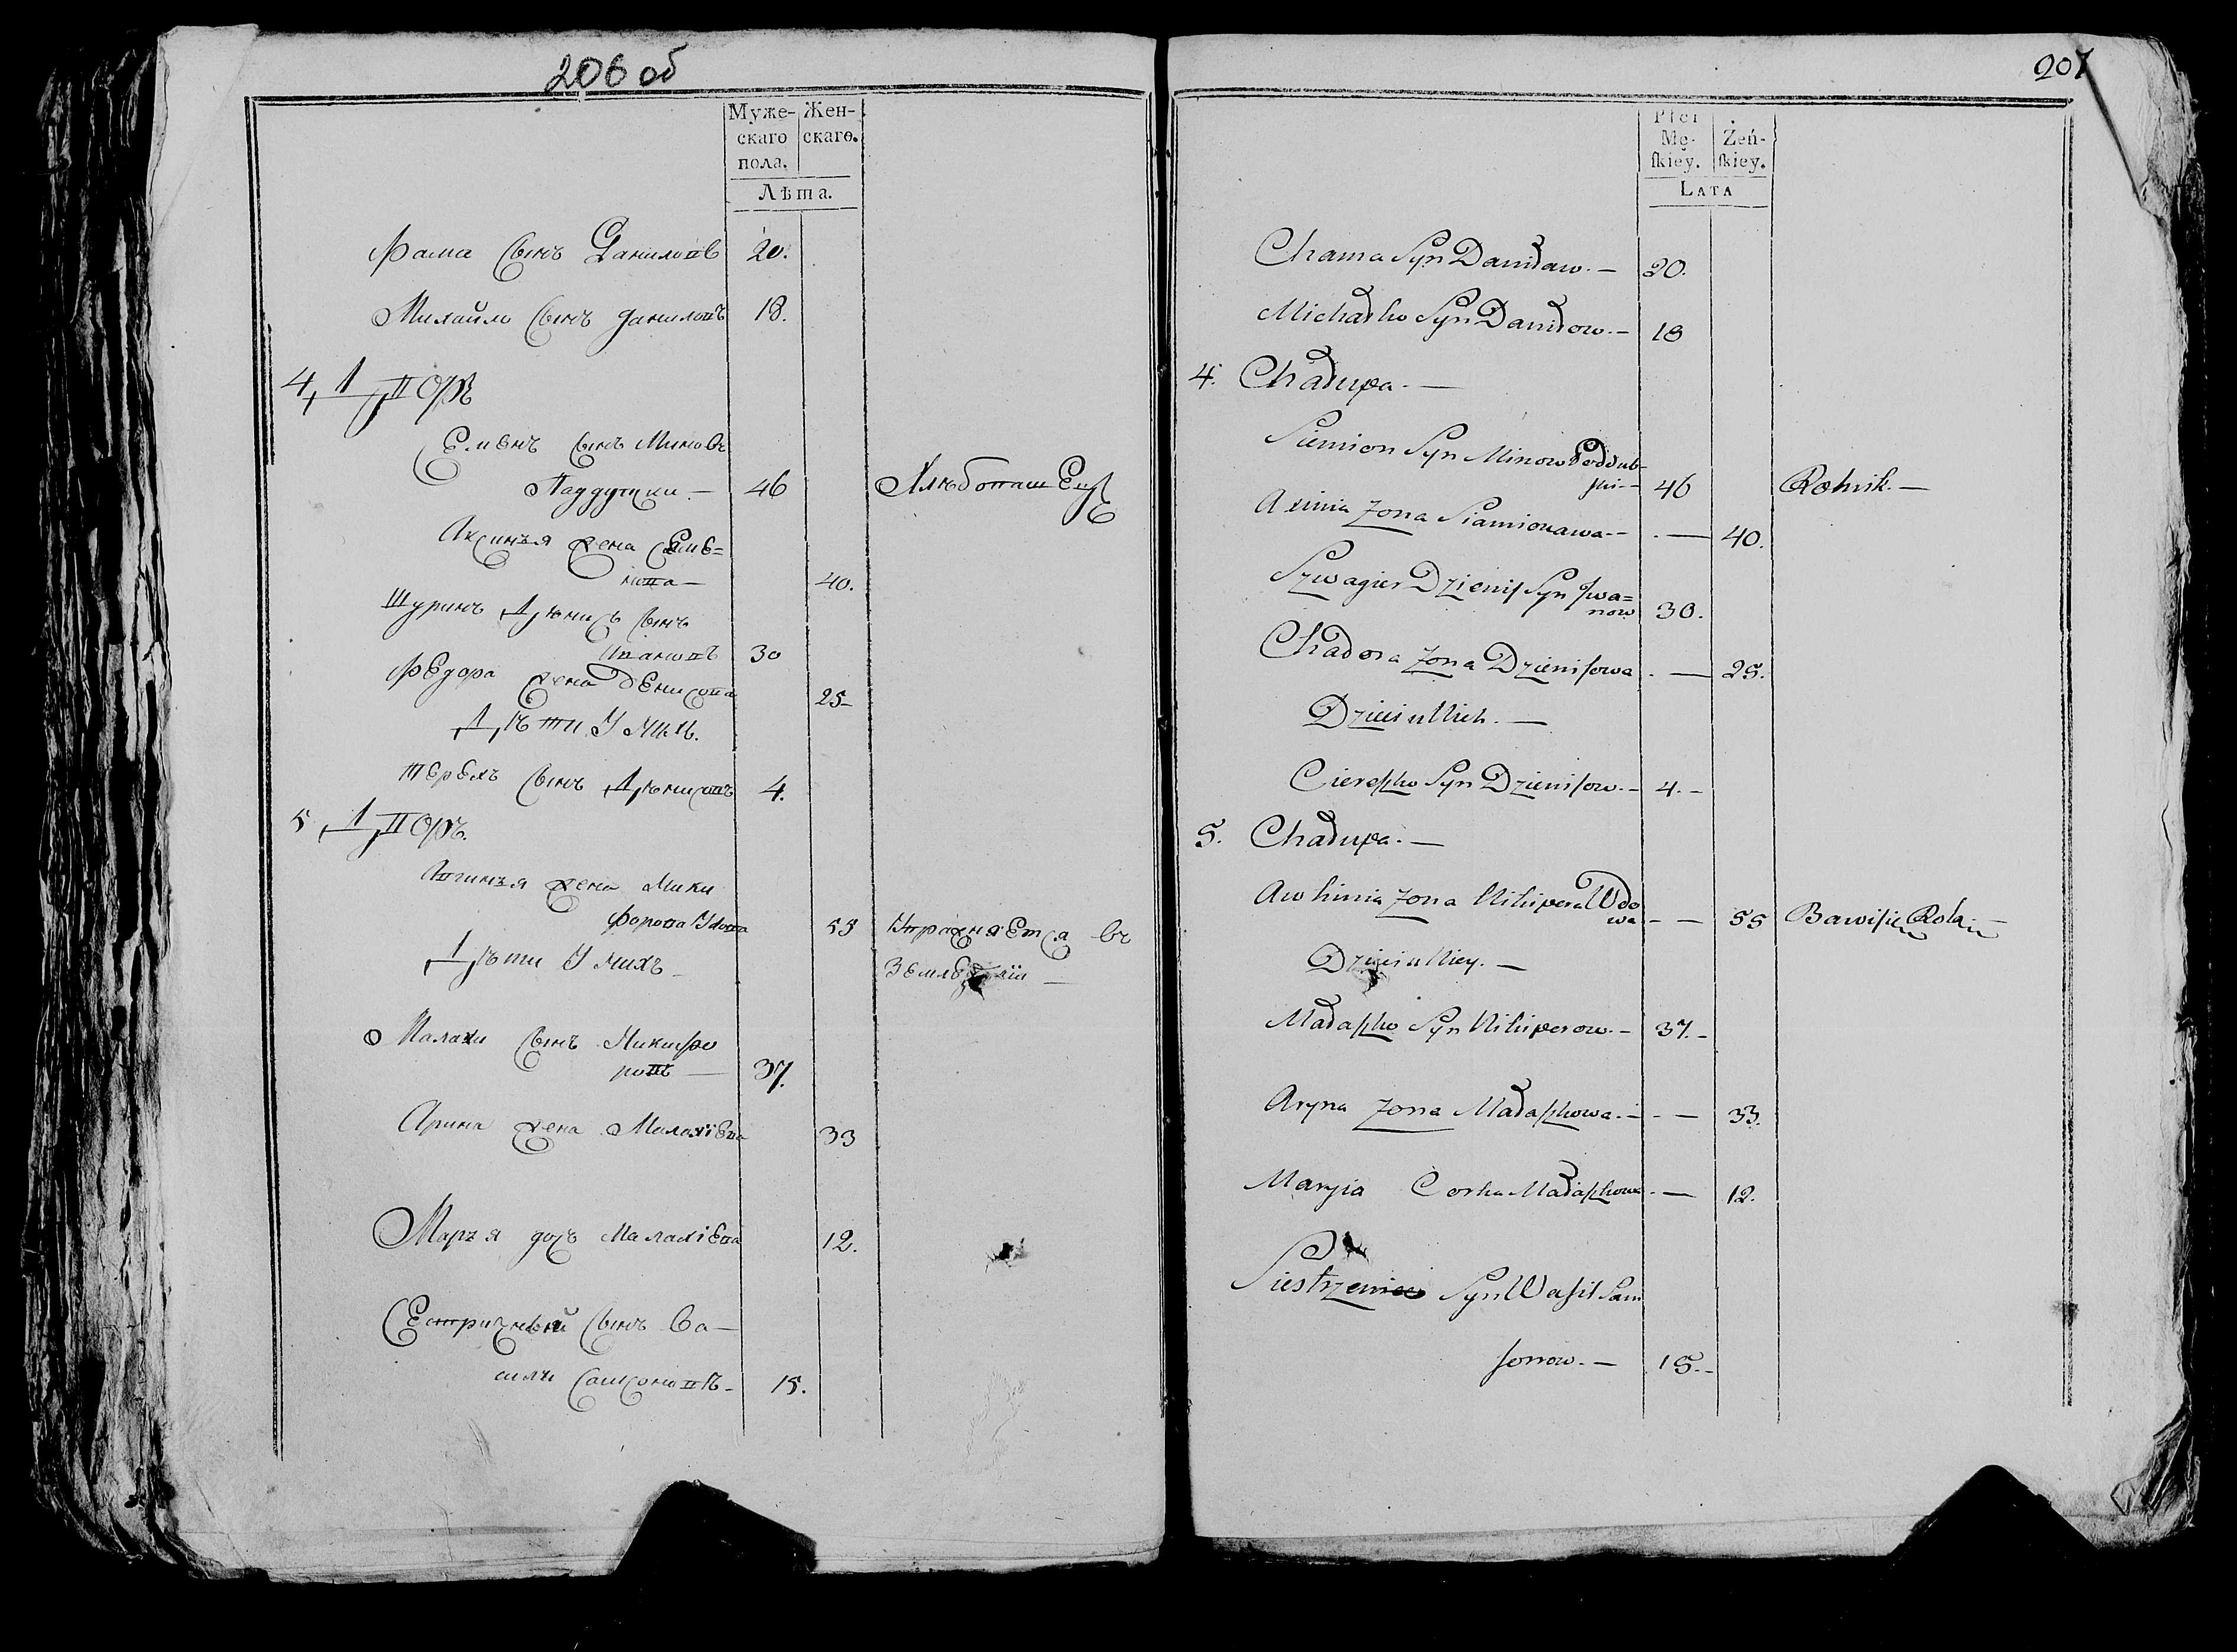 206 об
Муже-
скаго
пола.
Жен-
скаго.
Лѣта.
Фама сынъ Даниловъ 20.
Михайло сынъ Даниловъ 18.
4, Дворъ
Семенъ сынъ Миновъ
46 Хлѣбопашецъ
Аксинья жена Семе=
нова — 40.
Шуринъ Дзенисъ сынъ
Ивановъ 30
Федора жена Денисова 25-
Дѣти У нихъ.
Терехъ сынъ Денисовъ 4.
5 Дворъ.
жена Мики
форова Удова 55 Упражняетса въ
Дѣти У нихъ — Земледелiи —
Малахи сынъ Никифо
ровъ — 37.
Арина жена Малахiева 33
Марья дочь Малахiева 12.
Сестричный сынъ Ва—
силъ Самсоновъ - 15.
207
Płci
Mę-
ſkiey.
Żeń-
ſkiey.
Lata
Chama Syn Daniław. — 20.
Michałko Syn Daniłow. — 18
4. Chałupa. —
Siemion Syn Minow Poddub-
ski — 46 Rolnik. —
Axinia Zona Siamionawa - - . — 40.
Szwagier Dzienis Syn Iwa=
now 30.
Chadora Zona Dzienisowa . — 25.
Dzieci u Nich. —
Ciereszko Syn Dzienisow. — 4. -
5. Chałupa. —
Zona Nikipera Wdo
wa - — 55 Bawi się Rolą —
Dzieci u Niey. —
Małaszko Syn Nikiperow. — 37. -
Aryna Zona Małaszkowa. — - — 33.
Maryia Corka Małaszkowa . — 12.
Siestrzeniec Syn Wasil Sam
sonow. — 15. -